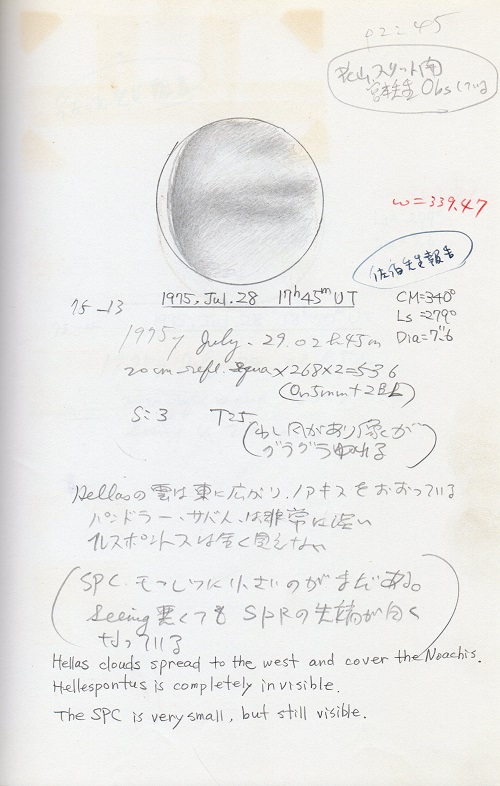 P2=45
スリット南
宮本先生 Obs している
ω=339.47
佐伯先生報告
75-13
1975, Jul. 28 17h45m UT
CM=340°
Ls=279°
Dia=7".6
1975 July. 29. 02h45m
20cm refl. ×268×2=536
(On5mm+2B.L)
S:3 T25
(少し風があり像が
グラグラゆれる)
Hellasの雲は東に広がり、ノアキスをおおっている
パンドラー、サバ人、は非常に淡い
ヘレスポントスは全く見えない
(SPC. もっしつに小さいのがまだある。
Seeing 悪くても SPRの先端が白く
なっている)
Hellas clouds spread to the west and cover the Noachis.
Hellespontus is completely invisible.
The SPC is very small, but still visible.